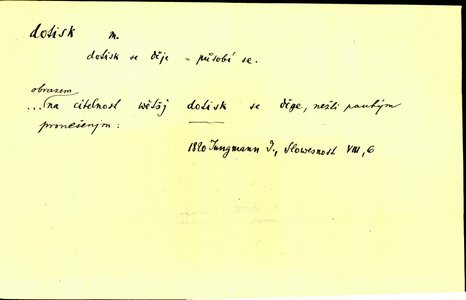 dotisk m.
dotisk se děje = působí se.
obrazem
... na citelnost wětžj dotisk se děge, nežli pauhým
pronešenjm :
1820 Jungmann J., Slowesnost VIII, 6